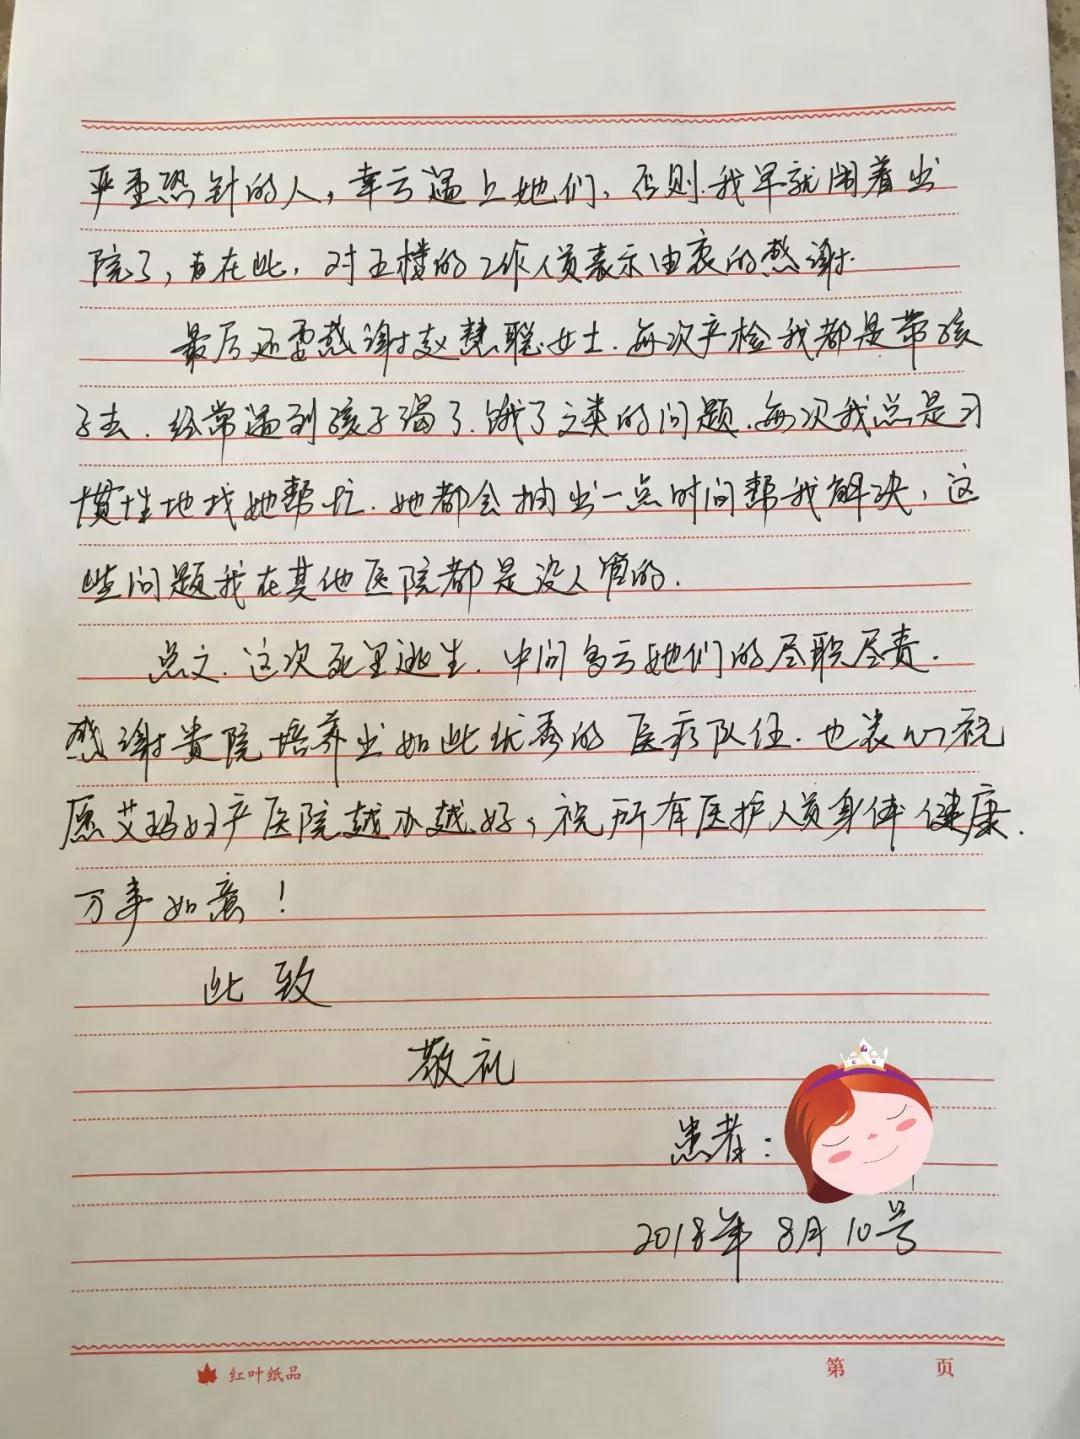 严重恐针的人，幸亏遇上她们，否则我早就闹着出
院了，在此，对五楼的工作人员表示由衷的感谢.
最后还要感谢赵慧聪女士.每次产检我都是带孩
子去.经常遇到孩子渴了.饿了之类的问题.每次我总是习
惯性地找她帮忙.她都会抽出一点时间帮我解决，这
些问题我在其他医院都是没人管的.
总之.这次死里逃生.中间多亏她们的尽职尽责.
感谢贵院培养出如此优秀的医疗队伍.也衷心祝
愿艾玛妇产医院越办越好，祝所有医护人员身体健康.
万事如意！
此致
敬礼
患者：
2018年8月10号
红叶纸品
第 页